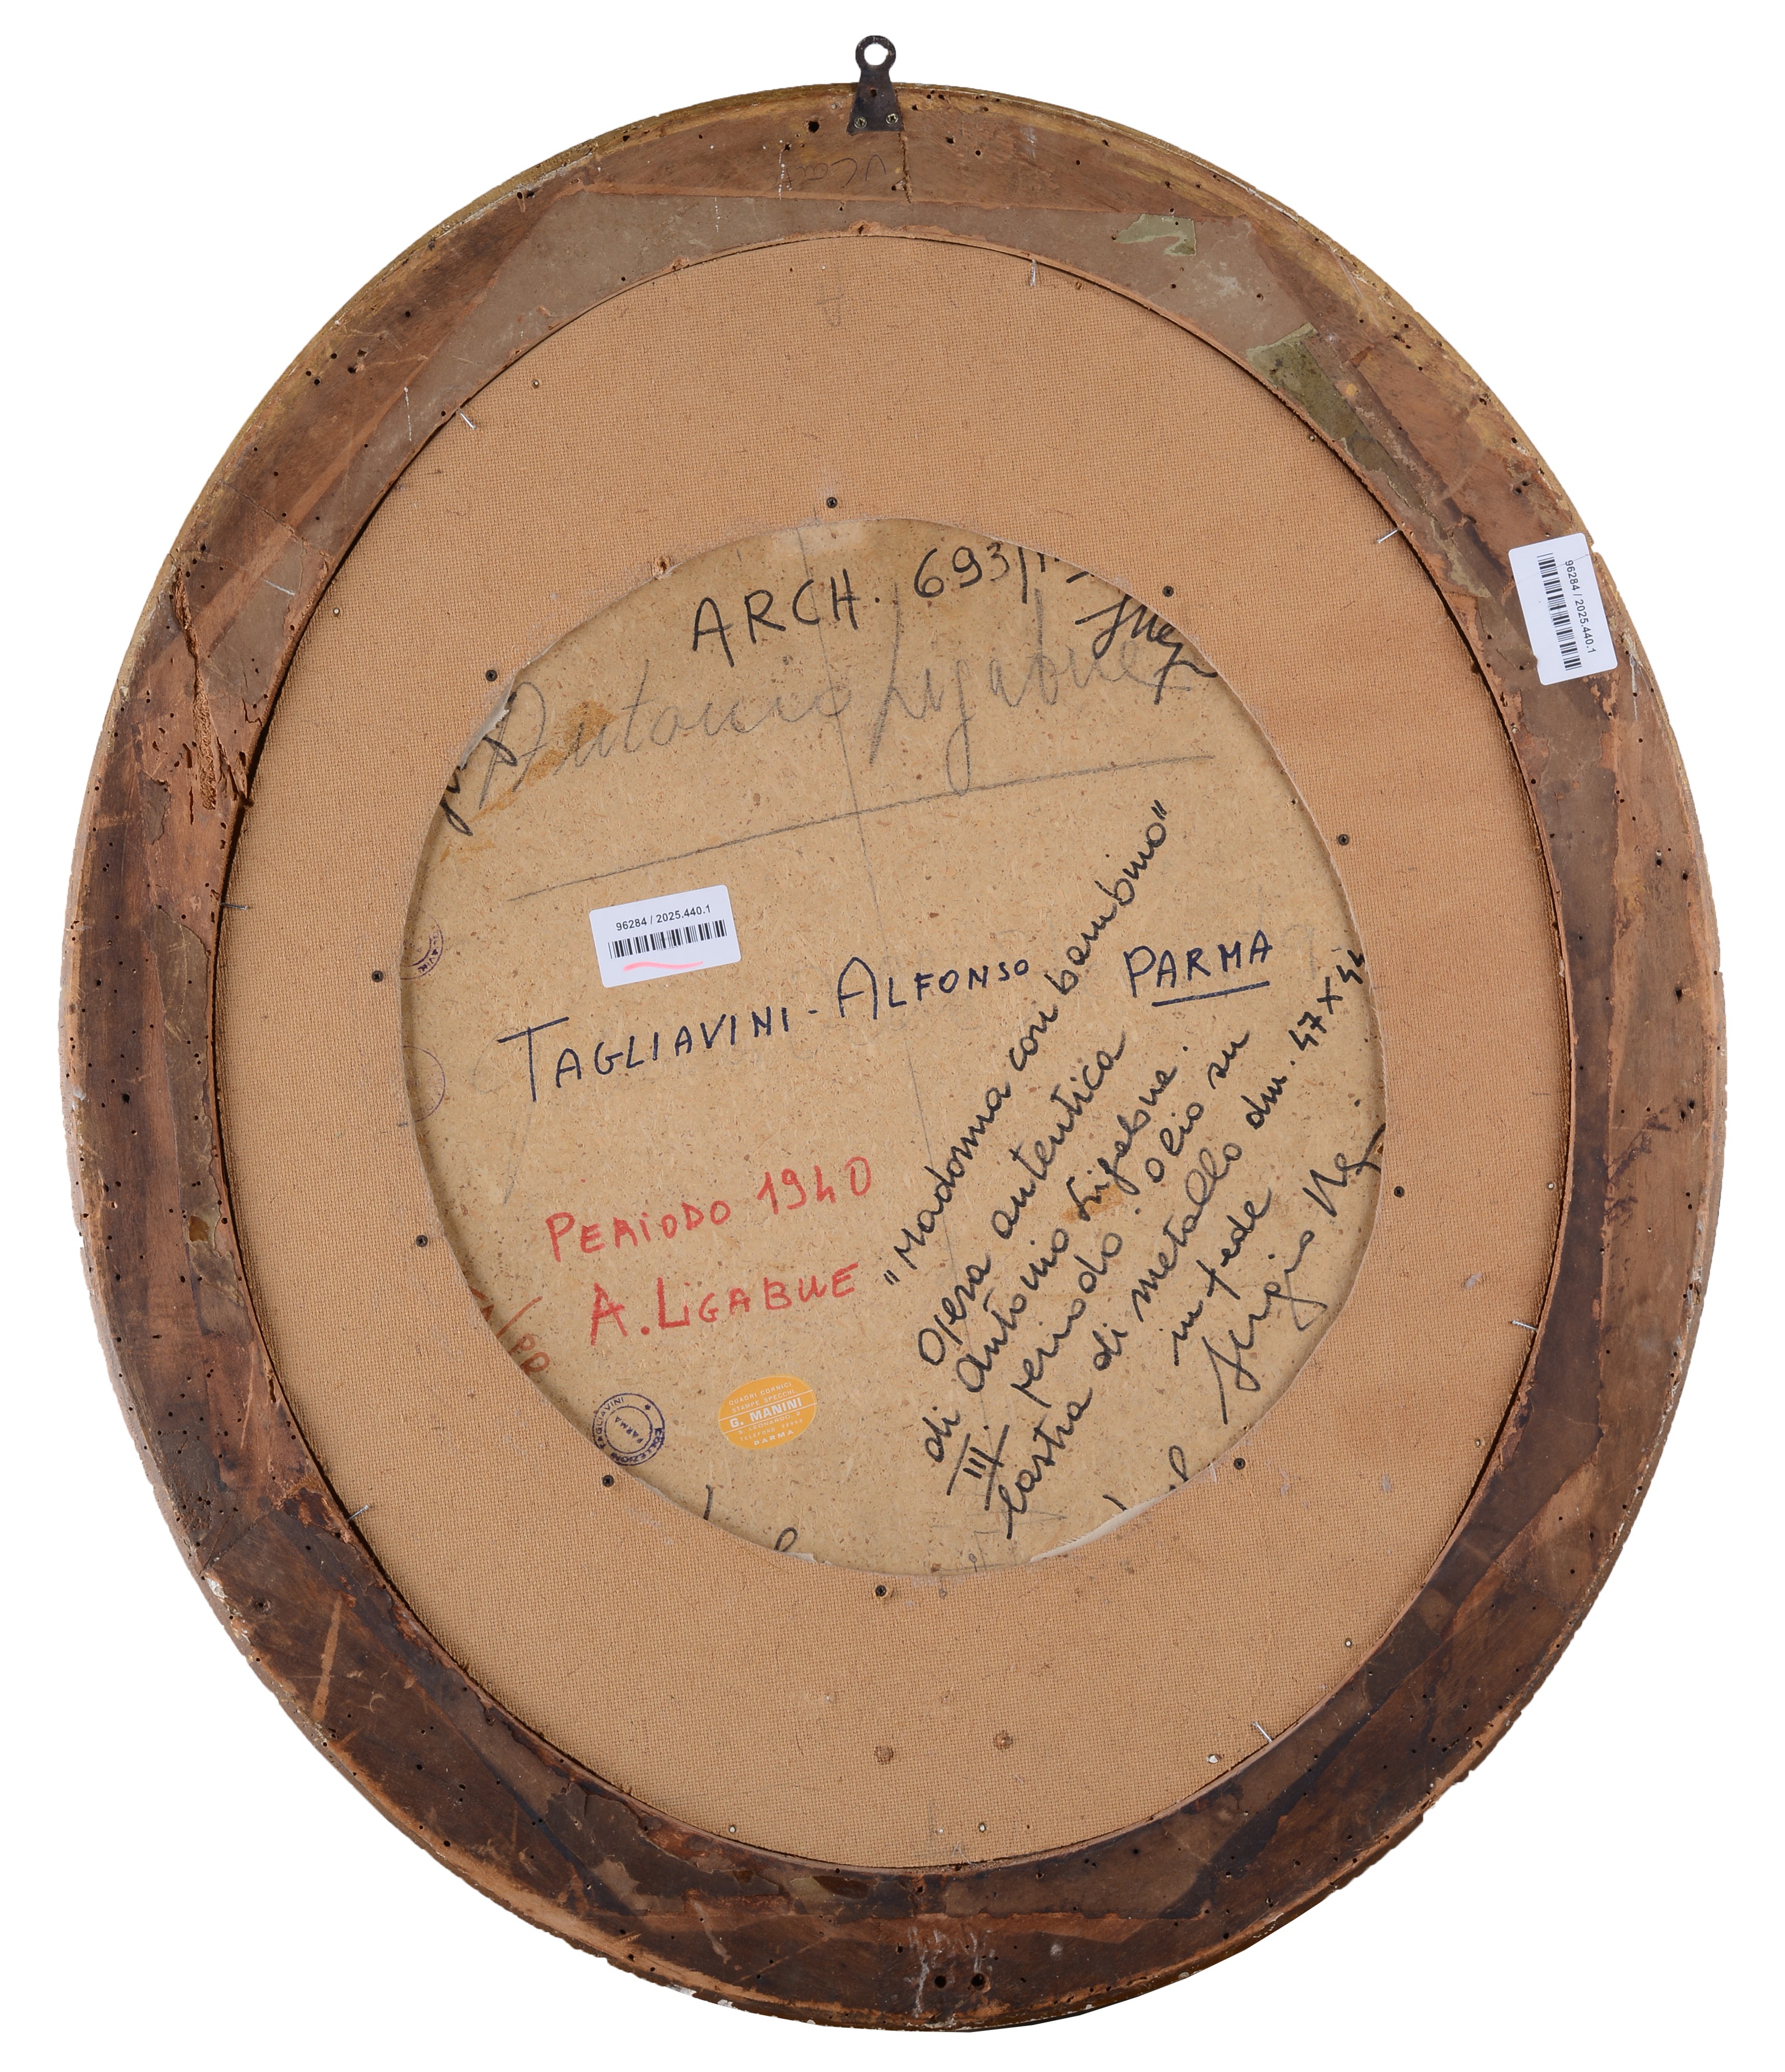 ARCH. 693/
Antonio Ligabue
96284 / 2025.440.1
96284 / 2025.440.1
TAGLIAVINI - ALFONSO PARMA
PERIODO 1940
A. LIGABUE
"Madonna con bambino"
Opera autentica
di Antonio Ligabue.
III periodo. Olio su
lastra di metallo dm. 47 x
in fede
Sergio Ne
COLLEZIONE TAGLIAVINI
PARMA
QUADRI CORNICI
STAMPE SPECCHI
G. MANINI
PARMA